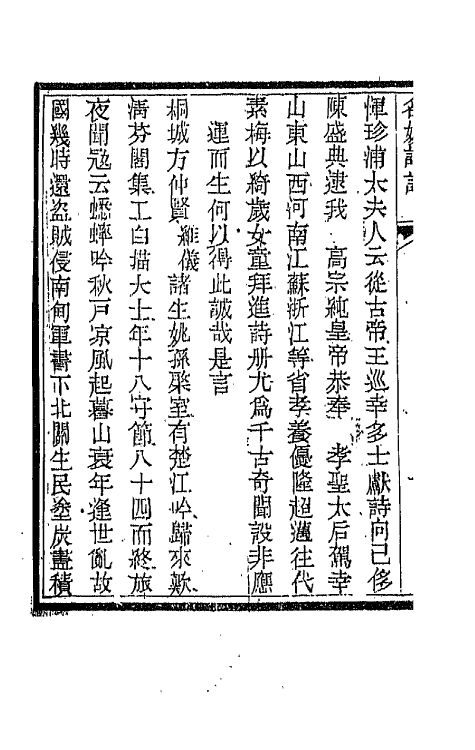 名媛詩話
惲珍浦太夫人云從古帝王巡幸多士獻詩向已侈
陳盛典逮我　高宗純皇帝恭奉　孝聖太后駕幸
山東山西河南江蘇浙江等省孝養優隆超邁往代
素梅以綺歲女童拜進詩册尤爲千古奇聞設非應
運而生何以得此誠哉是言
桐城方仲賢維儀諸生姚孫棨室有楚江吟歸來歎
淸芬閣集工白描大士年十八守節八十四而終旅
夜聞寇云蟋蟀吟秋戸凉風起暮山衰年逢世亂故
國幾時還盗賊侵南甸軍書下北關生民塗炭盡積